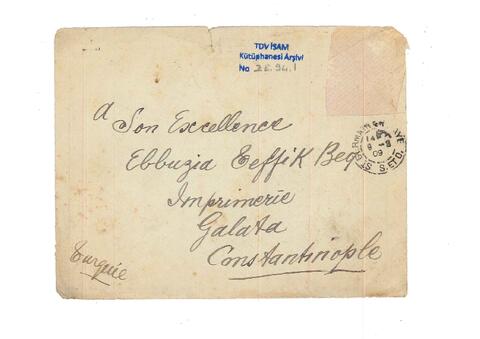 TDV İSAM
Kütüphanesi Arşivi
No 2E.94.1
A Son Excellence
Ebbuzia Teffik Beq
Imprimerie
Galata
Constantinople
Turquie
ST GERMAIN EN LAYE
09
S. ET O.